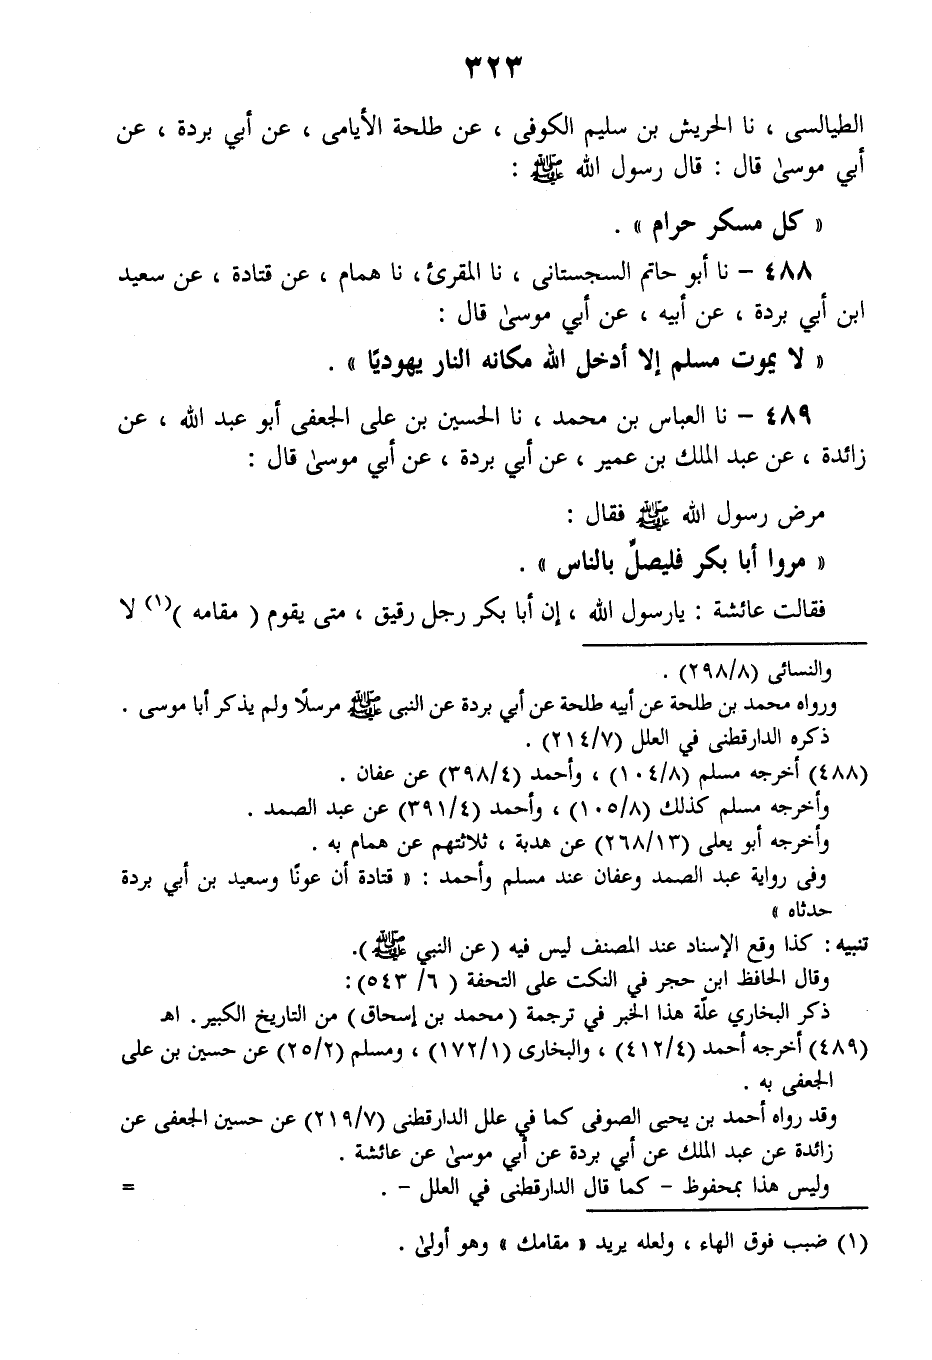 ٣٢٣
الطيالسى ، نا الحريش بن سليم الكوفى ، عن طلحة الأيامى ، عن أبي بردة ، عن
أبي موسىٰ قال : قال رسول الله ﷺ :
« كل مسكر حرام » .
٤٨٨ – نا أبو حاتم السجستانى ، نا المقرئ ، نا همام ، عن قتادة ، عن سعيد
ابن أبي بردة ، عن أبيه ، عن أبي موسىٰ قال :
« لا يموت مسلم إلا أدخل الله مكانه النار يهوديًا » .
٤٨٩ – نا العباس بن محمد ، نا الحسين بن على الجعفى أبو عبد الله ، عن
زائدة ، عن عبد الملك بن عمير ، عن أبي بردة ، عن أبي موسىٰ قال :
مرض رسول الله ﷺ فقال :
« مروا أبا بكر فليصلِّ بالناس » .
فقالت عائشة : يارسول الله ، إن أبا بكر رجل رقيق ، متى يقوم ( مقامه )(١) لا
والنسائى (٢٩٨/٨) .
ورواه محمد بن طلحة عن أبيه طلحة عن أبي بردة عن النبى ﷺ مرسلًا ولم يذكر أبا موسى .
ذكره الدارقطنى في العلل (٢١٤/٧) .
(٤٨٨) أخرجه مسلم (١٠٤/٨) ، وأحمد (٣٩٨/٤) عن عفان .
وأخرجه مسلم كذلك (١٠٥/٨) ، وأحمد (٣٩١/٤) عن عبد الصمد .
وأخرجه أبو يعلى (٢٦٨/١٣) عن هدبة ، ثلاثتهم عن همام به .
وفى رواية عبد الصمد وعفان عند مسلم وأحمد : « قتادة أن عونًا وسعيد بن أبي بردة
حدثاه »
تنبيه : كذا وقع الإسناد عند المصنف ليس فيه (عن النبي ﷺ).
وقال الحافظ ابن حجر في النكت على التحفة ( ٦/ ٥٤٣):
ذكر البخاري علّة هذا الخبر في ترجمة (محمد بن إسحاق) من التاريخ الكبير . اهـ
(٤٨٩) أخرجه أحمد (٤١٢/٤) ، والبخارى (١٧٢/١) ، ومسلم (٢٥/٢) عن حسين بن على
الجعفى به .
وقد رواه أحمد بن يحيى الصوفى كما في علل الدارقطنى (٢١٩/٧) عن حسين الجعفى عن
زائدة عن عبد الملك عن أبي بردة عن أبي موسىٰ عن عائشة .
وليس هذا بمحفوظ – كما قال الدارقطنى في العلل – . =
(١) ضبب فوق الهاء ، ولعله يريد « مقامك » وهو أولىٰ .